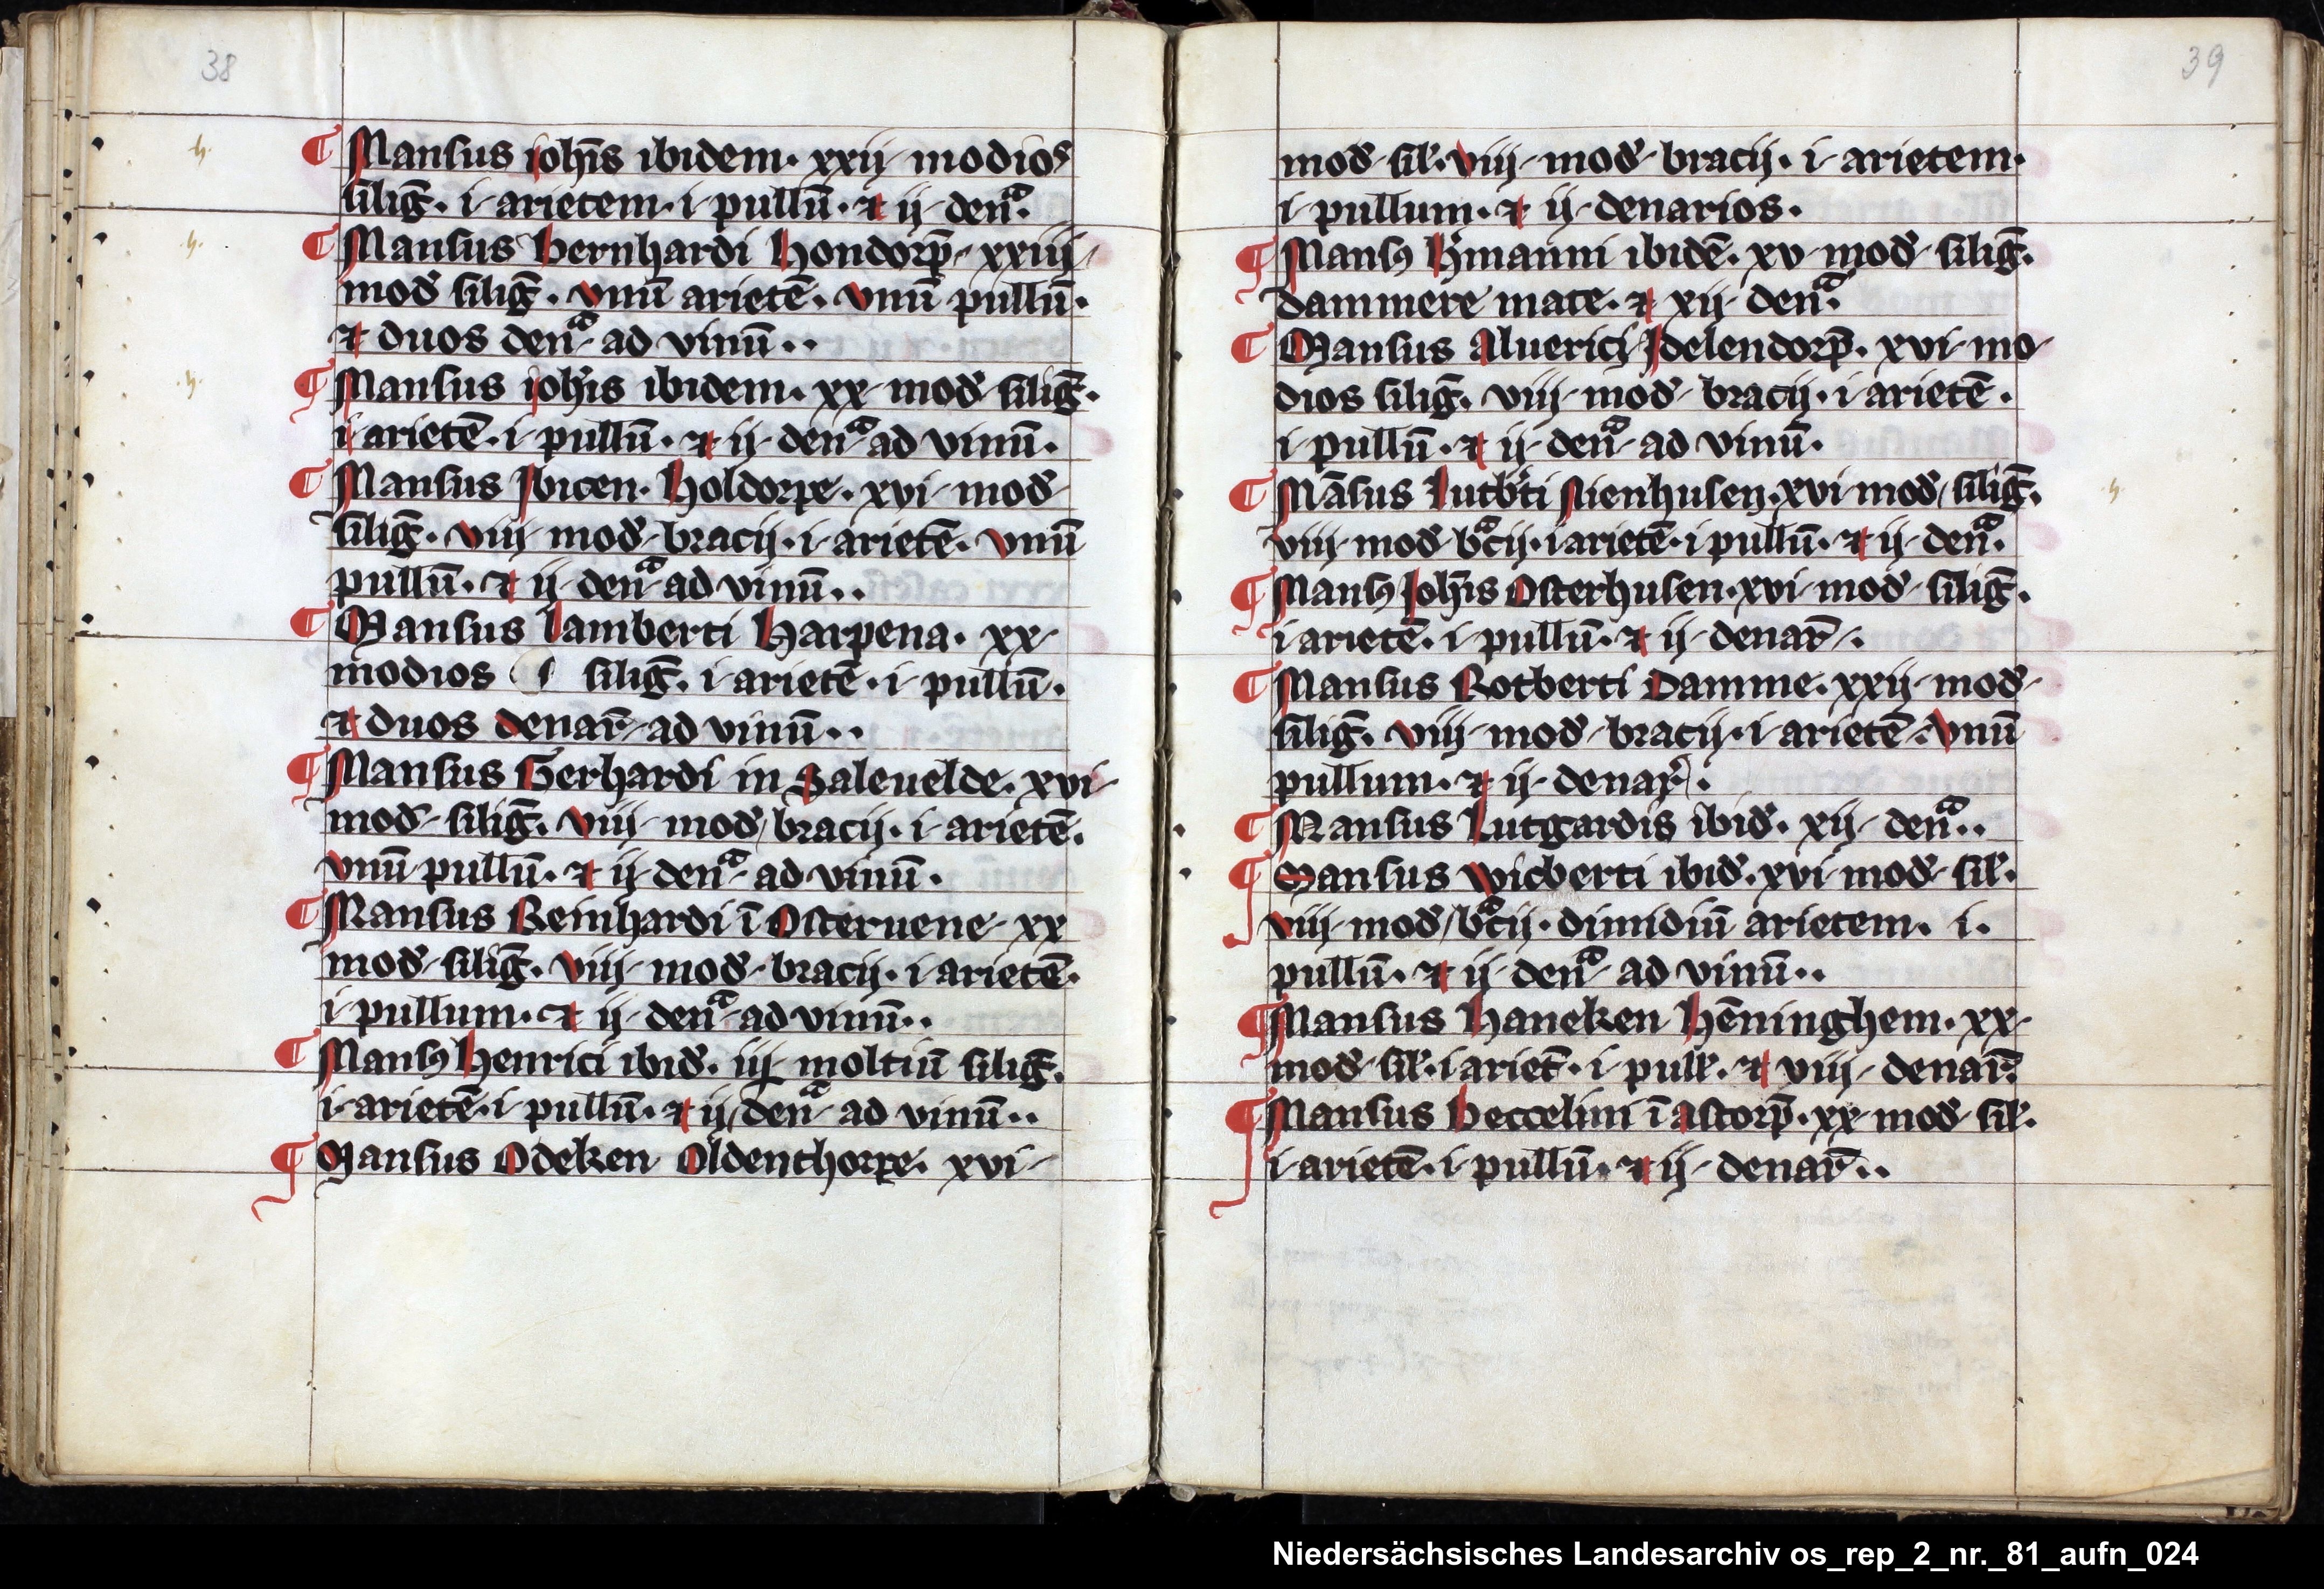 38
¶ Mansus ioh̅is ibidem · xxij · modios
silig̅ · i · arietem · i · pullu̅ · ⁊ ij · denᵃ ·
¶ Mansus bernhardi hondorp̅ · xxiij ·
mod silig̅ · vnu̅ ariete̅ · vnu̅ pullu̅ ·
⁊ duos denᵃ · ad vinu̅ ··
¶ Mansus ioh̅is ibidem · xx · mod silig̅ ·
i ariete̅ · i · pullu̅ · ⁊ ij · denᵃ ad vinu̅ ·
¶ Mansus Ibicen · holdorpe · xvi · mod ·
silig̅ · viij · mod · bracij · i · ariete̅ · vnu̅
pullu̅ · ⁊ ij · denᵃ ad vinu̅ ··
¶ Mansus lamberti harpena · xx ·
modios silig̅ · i ariete̅ · i · pullu̅ ·
⁊ duos denar̅ · ad vinu̅ ··
¶ Mansus Gerhardi in Saleuelde · xvi ·
mod · silig̅ · viij · mod / bracij · i · ariete̅ ·
vnu̅ pullu̅ · ⁊ ij · denᵃ · ad vinu̅ ·
¶ Mansus Reinhardi i̅ Osteruene · xx
mod · silig̅ · viij · mod · bracij · i · ariete̅ ·
i · pullum · ⁊ ij · denᵃ · ad vinu̅ ··
¶ Mansꝯ henrici ibid · iij moltiu̅ silig̅ ·
i · ariete̅ · i · pullu̅ · ⁊ ij / denᵃ · ad vinu̅ ··
¶ Mansus Odeken Oldenthorpe · xvi ·
39
mod · sil · viij · mod · bracij · i · arietem ·
i · pullum · ⁊ ij · denarios ·
¶ Mansꝯ h'manni ibide̅ · xv · mod · silig̅ ·
dammere mate · ⁊ xij · denᵃ ·
¶ Mansus Aluerici Idelendorp̅ · xvi · mo-
dios silig̅ · viij · mod · bracij · i ariete̅ ·
i · pullu̅ · ⁊ ij · denᵃ · ad vinu̅ ·
¶ Ma̅sus lutb'ti Nienhusen · xvi mod / silig̅ ·
viij · mod · bᵃcij · i ariete̅ · i pullu̅ · ⁊ ij · denᵃ ·
¶ Mansꝯ Ioh̅is Osterhusen · xvi · mod · silig̅ ·
i ariete̅ · i · pullu̅ · ⁊ ij · denar̅ · ·
¶ Mansus Rotberti Damme · xxij · mod ·
silig̅ · viij · mod · bracij · i ariete̅ · vnu̅
pullum · ⁊ ij · denar̅ ·
¶ Mansus Lutgardis ibid · xij · denᵃ ··
¶ Mansus wicberti ibid · xvi · mod · sil ·
viij · mod / bᵃcij · dimidiu̅ arietem · i ·
pullu̅ · ⁊ ij · denᵃ · ad vinu̅ ··
¶ Mansus haneken he̅ninghem · xx ·
mod · sil · i ariet̅ · i · pull · ⁊ viij · denar̅ ·
¶ Mansus beccelini i̅ astorp̅ · xx · mod · sil ·
i · ariete̅ · i · pullu̅ · ⁊ ij · denar̅ ··
Niedersächsisches Landesarchiv os_rep_2_nr._81_aufn_024